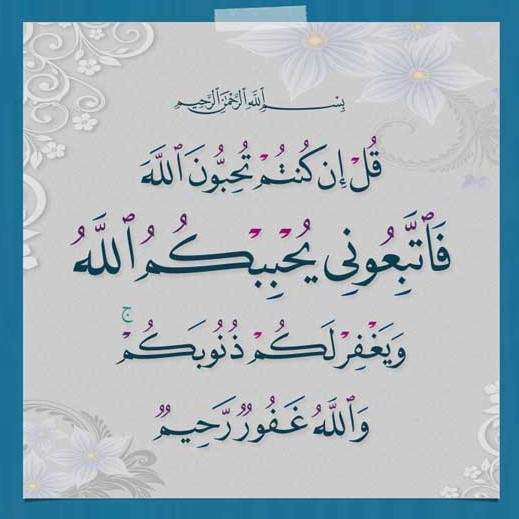 بِسْمِ اللَّهِ الرَّحْمَٰنِ الرَّحِيمِ
قُلْ إِن كُنتُمْ تُحِبُّونَ ٱللَّهَ
فَٱتَّبِعُونِى يُحْبِبْكُمُ ٱللَّهُ
وَيَغْفِرْ لَكُمْ ذُنُوبَكُمْ ۚ
وَٱللَّهُ غَفُورٌ رَّحِيمٌ